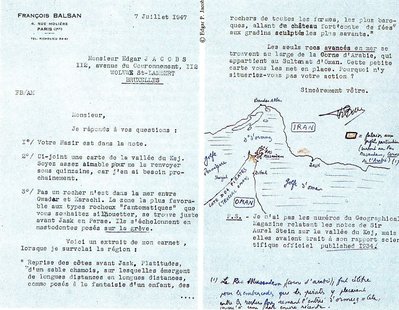 FRANÇOIS BALSAN
4, RUE MOLIÈRE
PARIS (1er)
7 Juillet 1947
Monsieur Edgar J A C O B S
112, avenue du Couronnement, 112
WOLUWE St-LAMBERT
BRUXELLES
FB/AN
Monsieur,
Je réponds à vos questions :
1°/ Votre Nasir est dans la note.
2°/ Ci-joint une carte de la vallée du Kej.
Soyez assez aimable pour me la renvoyer
sous quinzaine, car j'en ai besoin pro-
chainement.
3°/ Pas un rocher n'est dans la mer entre
Gwadar et Karachi. La zone la plus favora-
ble aux types rocheux "fantomatiques" que
vous souhaitez silhouetter, se trouve juste
avant Jask en Perse. Ils s'échelonnent en
mastodontes posés sur la grève.
Voici un extrait de mon carnet,
lorsque je survolai la région :
"Reprise des côtes avant Jask, Platitudes,
d'un sable chamois, sur lesquelles émergent
de longues distances en longues distances,
comme posés à la fantaisie d'un enfant, des
rochers de toutes les formes, les plus baro-
ques, allant du château fort "conte de fées"
aux gradins sculptés les plus savants."
Les seuls rocs avancés en mer se
trouvent au large de la Corne d'Arabie, qui
appartient au Sultanat d'Oman. Cette petite
carte vous les met en place. Pourquoi n'y
situeriez-vous pas votre action ?
Sincèrement vôtre.
© Edgar P. Jacobs
IRAN
d'Ormuz
Golfe
Persique
OMAN
Golfe d'Oman
P.S. - Je n'ai pas les numéros du Geographical
Magazine relatant les notes de Sir
Aurel Stein sur la vallée du Kej, mais
elles avaient trait à son rapport scien-
tifique officiel published 1934.
(1) Le Ras Masandam